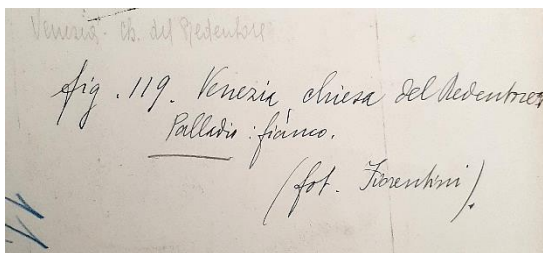 Venezia - Ch. del Redentore
fig. 119. Venezia chiesa del Redentore
Palladio: fianco.
(fot. Fiorentini).
11